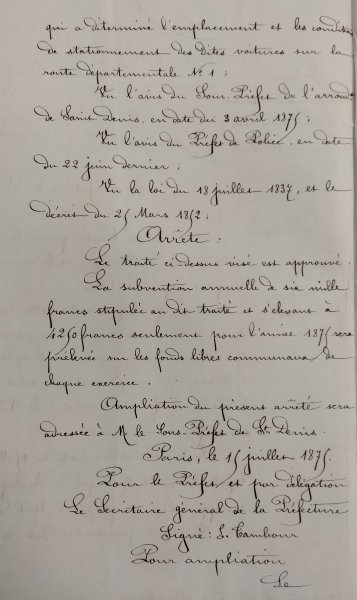 qui a déterminé l'emplacement et les conditions
de stationnement des dites voitures sur la
route départementale N° 1 ;
Vu l'avis du Sous-Préfet de l'arrond.
de Saint Denis, en date du 3 avril 1875 ;
Vu l'avis du Préfet de Police, en date
du 22 juin dernier ;
Vu la loi du 18 juillet 1837, et le
décret du 25 Mars 1852 ;
Arrête :
Le traité ci-dessus visé est approuvé.
La subvention annuelle de six mille
francs stipulée au dit traité et s'élevant à
4250 francs seulement pour l'année 1875 sera
prélevée sur les fonds libres communaux de
chaque exercice.
Ampliation du présent arrêté sera
adressée à M. le Sous-Préfet de St Denis.
Paris, le 15 juillet 1875.
Pour le Préfet et par délégation
Le Secrétaire général de la Préfecture
Signé : L. Tambour
Pour ampliation
Le